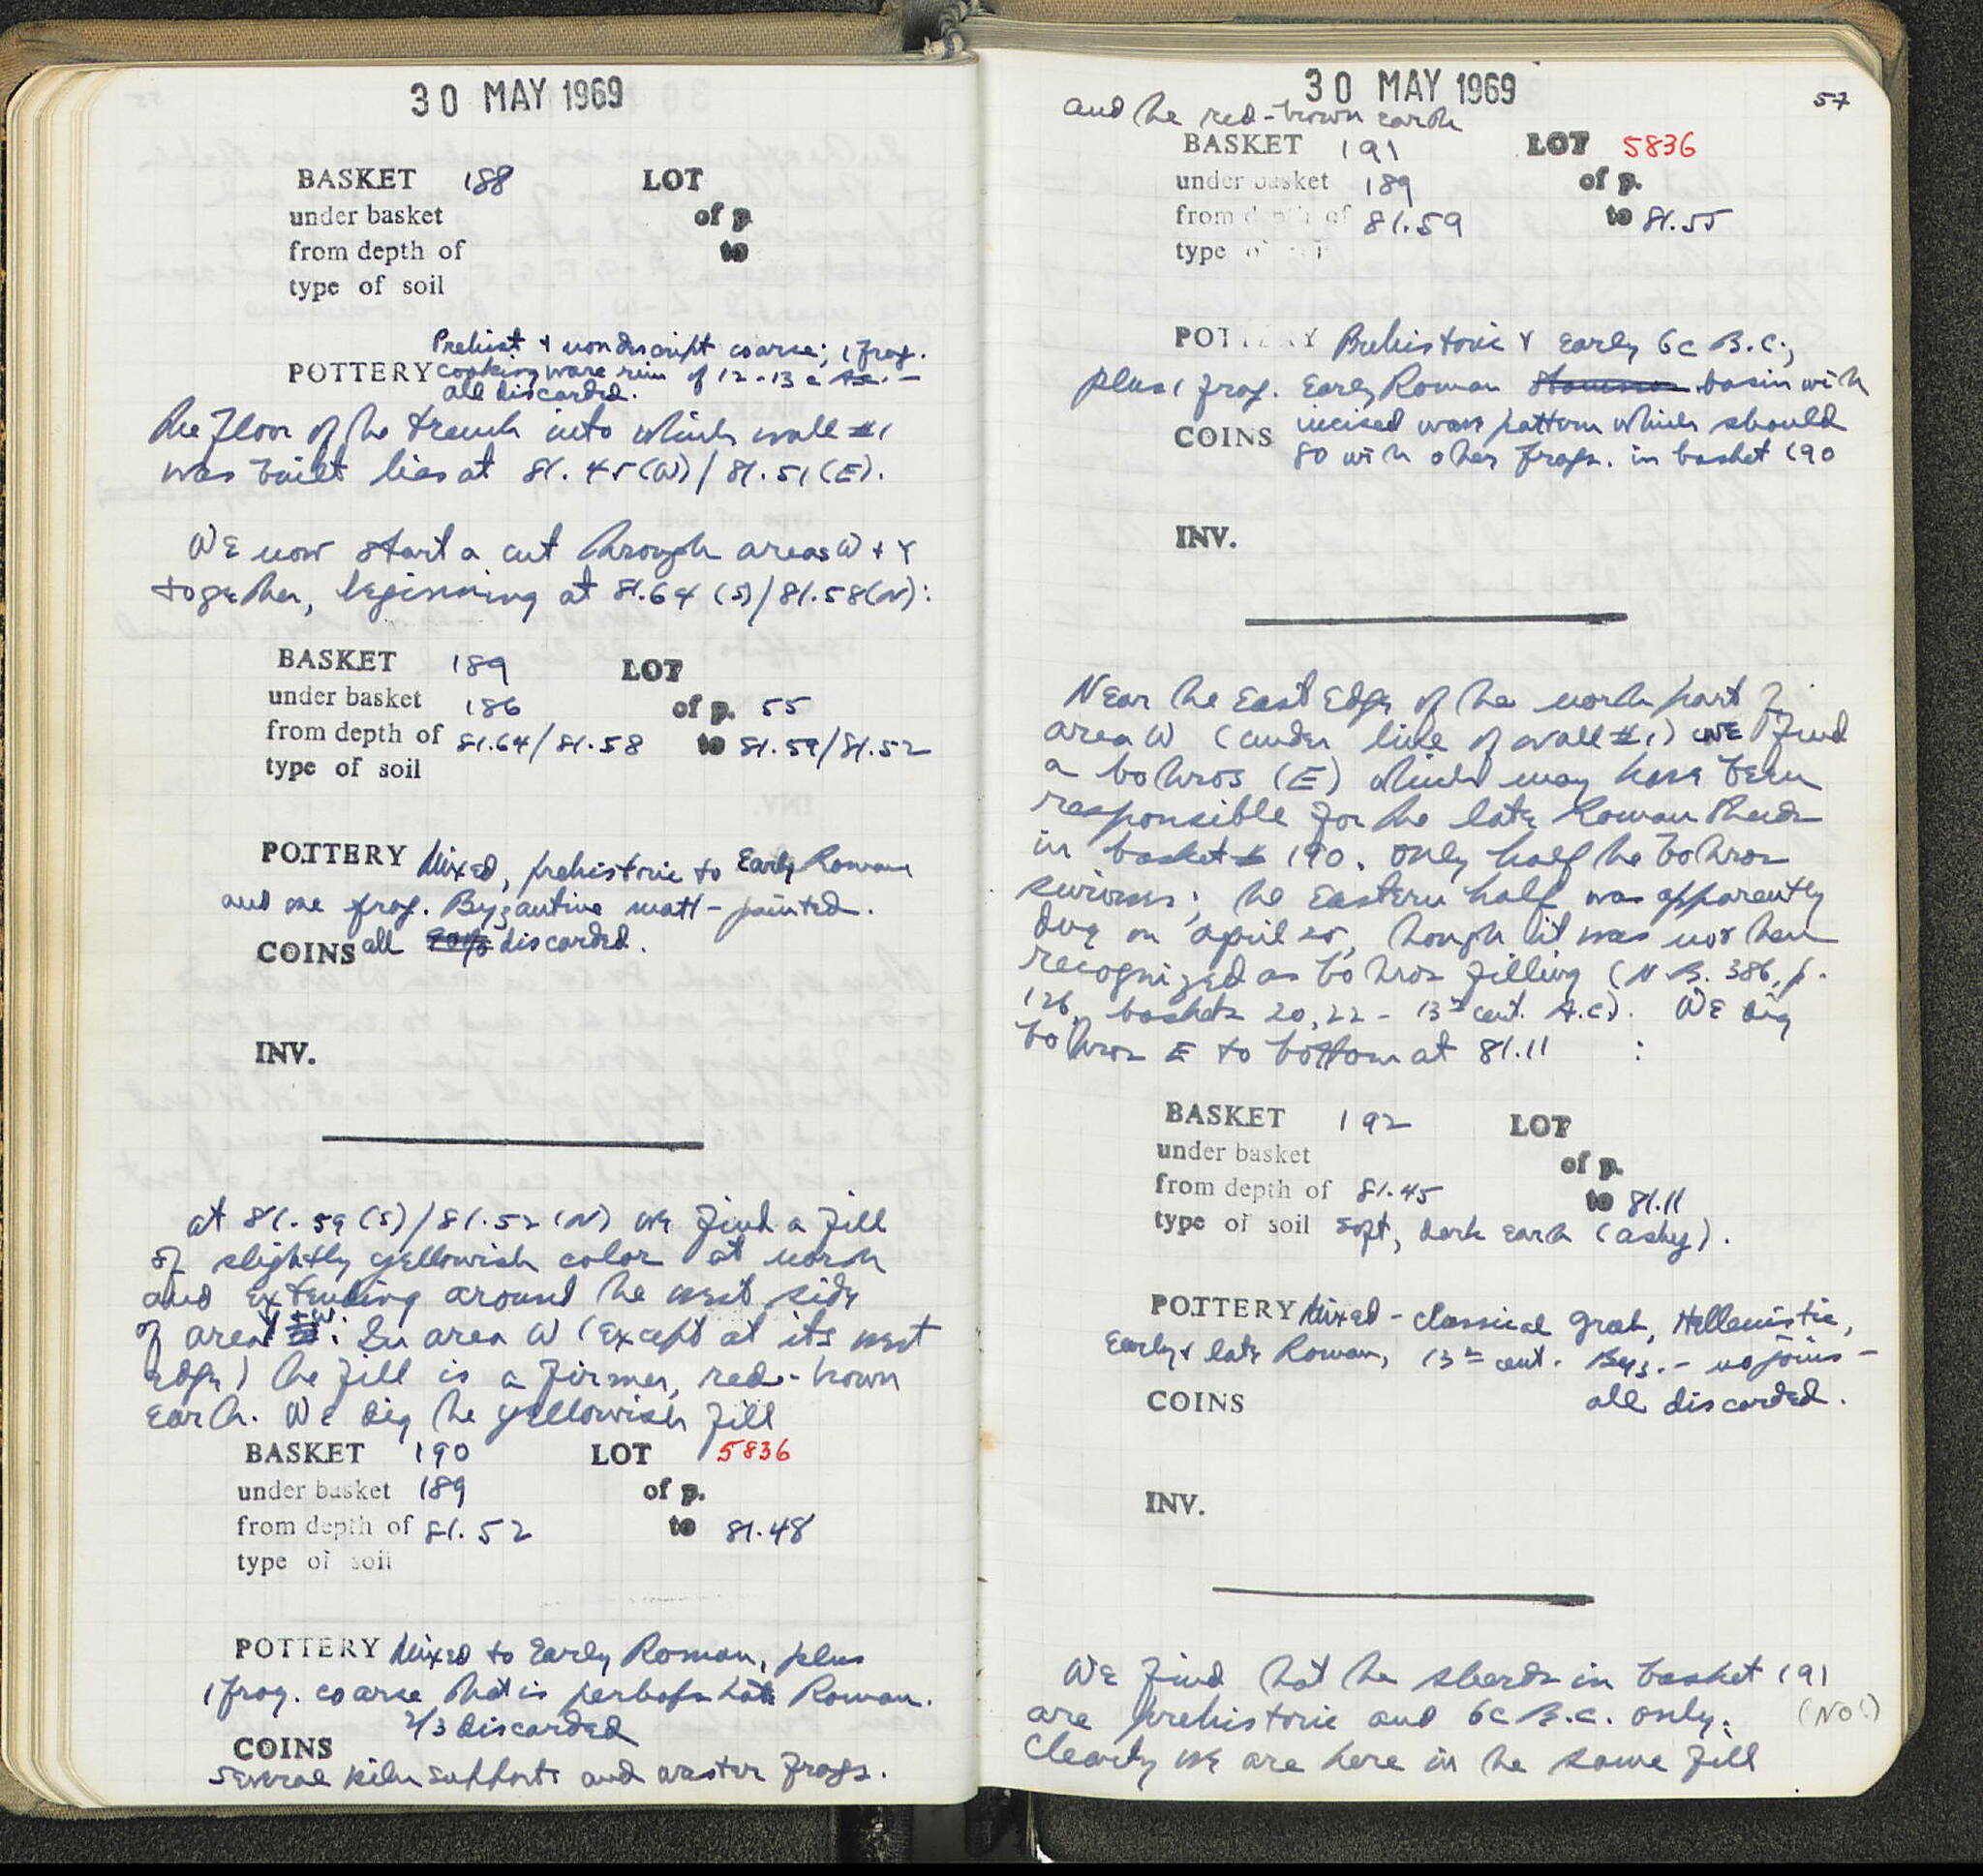 30 MAY 1969
BASKET 188 LOT
under basket of p.
from depth of to
type of soil
Prehist + nondescript coarse; 1 frag.
POTTERY cooking ware rim of 12-13 c
all discarded.
The floor of the trench into which wall #1
was built lies at 81.45(W)/81.51(E).
We now start a cut through areas W + Y
together, beginning at 81.64 (S)/81.58(N):
BASKET 189 LOT
under basket 186 of p. 55
from depth of 81.64/81.58 to 81.59/81.52
type of soil
POTTERY Mixed, prehistoric to Early Roman
and one frag. Byzantine matt-painted.
COINS all discarded.
INV.
at 81.59(S)/81.52(N) we find a fill
of slightly yellowish color at north
and extending around the west side
of area Y + W. In area W (except at its west
edge) the fill is a firmer, red-brown
earth. We dig the yellowish fill
BASKET 190 LOT 5836
under basket 189 of p.
from depth of 81.52 to 81.48
type of soil
POTTERY Mixed to Early Roman, plus
1 frag. coarse that is perhaps Late Roman.
2/3 discarded
COINS
several kiln supports and waster frags.
30 MAY 1969
57
and the red-brown earth
BASKET 191 LOT 5836
under basket 189 of p.
from depth of 81.59 to 81.55
type of soil
POTTERY Prehistoric & Early 6c B.C.;
plus 1 frag. Early Roman basin with
incised wave pattern which should
COINS go with other frags. in basket 190
INV.
Near the East Edge of the north part of
area W (under line of wall #1) we find
a bothros (E) which may have been
responsible for the late Roman sherds
in basket 190. Only half the bothros
survives; the Eastern half was apparently
dug on April 25, though it was not then
recognized as bothros filling (N.B. 386, p.
126, baskets 20, 22 - 13th cent. A.C.). We dig
bothros E to bottom at 81.11 :
BASKET 192 LOT
under basket of p.
from depth of 81.45 to 81.11
type of soil soft, dark earth (ashy).
POTTERY Mixed - classical Greek, Hellenistic,
Early & late Roman, 13th cent. Byz. - no joins -
COINS all discarded.
INV.
We find that the sherds in basket 191
are prehistoric and 6c B.C. only; (NO!)
Clearly we are here in the same fill